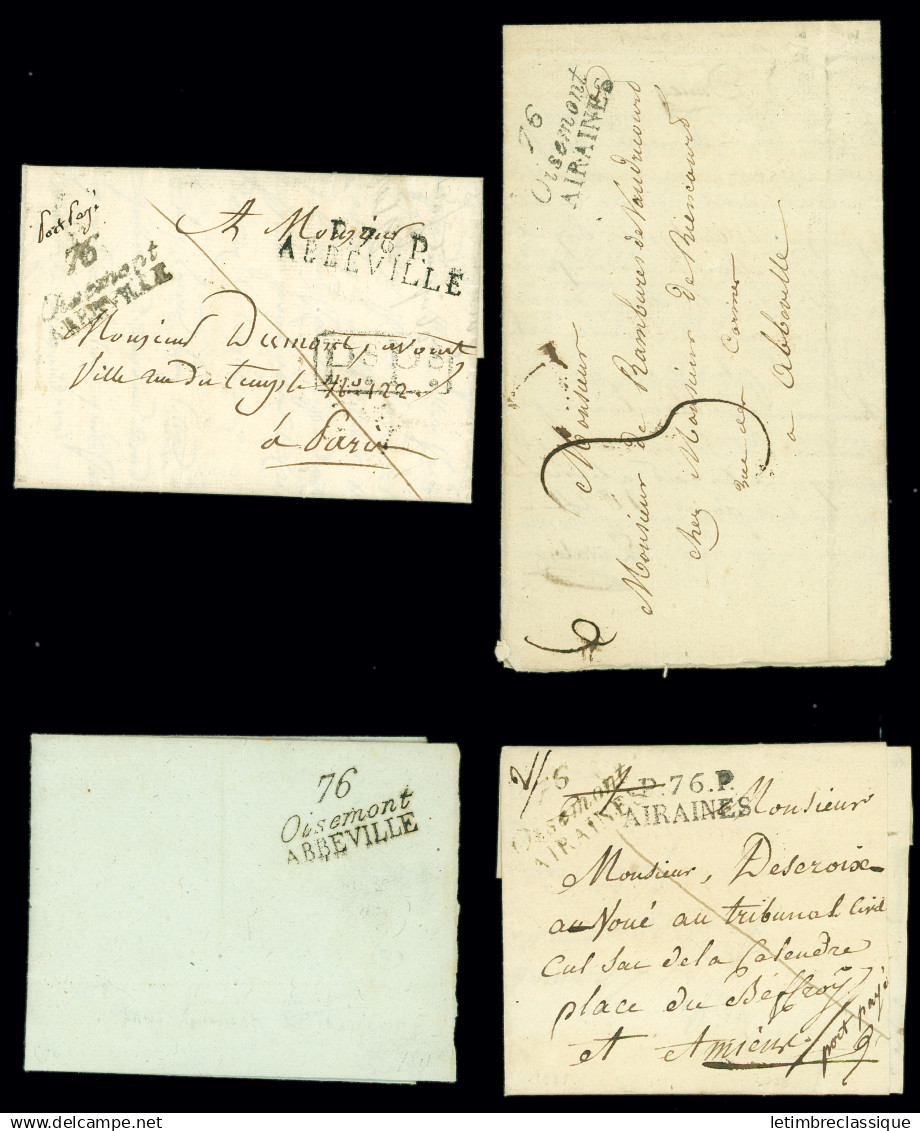 Port Payé
76
Oisemont
ABBEVILLE
A Monsieur
P. 76 P.
ABBEVILLE
Monsieur Dumont, avoué
Ville rue du temple n° 122
à Paris
76
Oisemont
AIRAINES
Monsieur
Monsieur de Rambures de Vaudricourt
chez Monsieur de Riencourt
rue des
à Abbeville
6
76
Oisemont
ABBEVILLE
76
Oisemont
AIRAINES
P.76.P.
AIRAINES
Monsieur
Monsieur, Descroix
avoué au tribunal Civil
Cul sac de la Calendre
place du Beffroy
et Amiens
port payé
delcampe.net
letimbreclassique